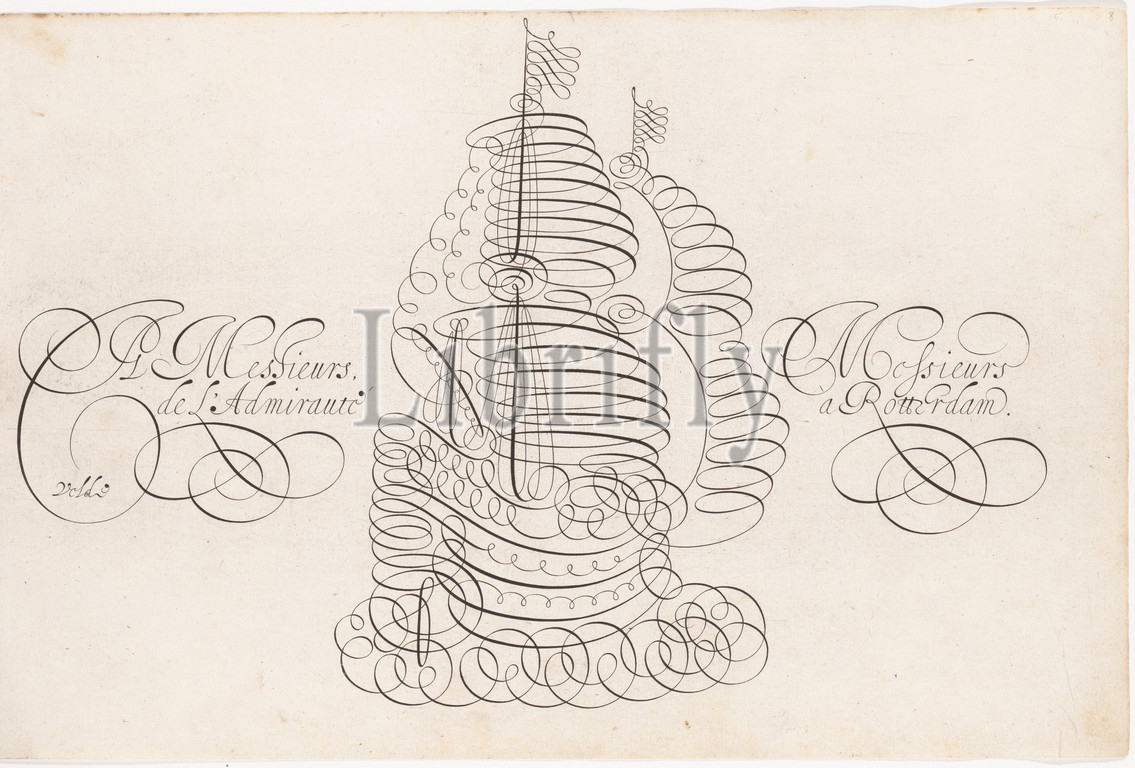 A Messieurs,
de L'Admirauté
Velde
Messieurs
a Rotterdam.
Librifly
8